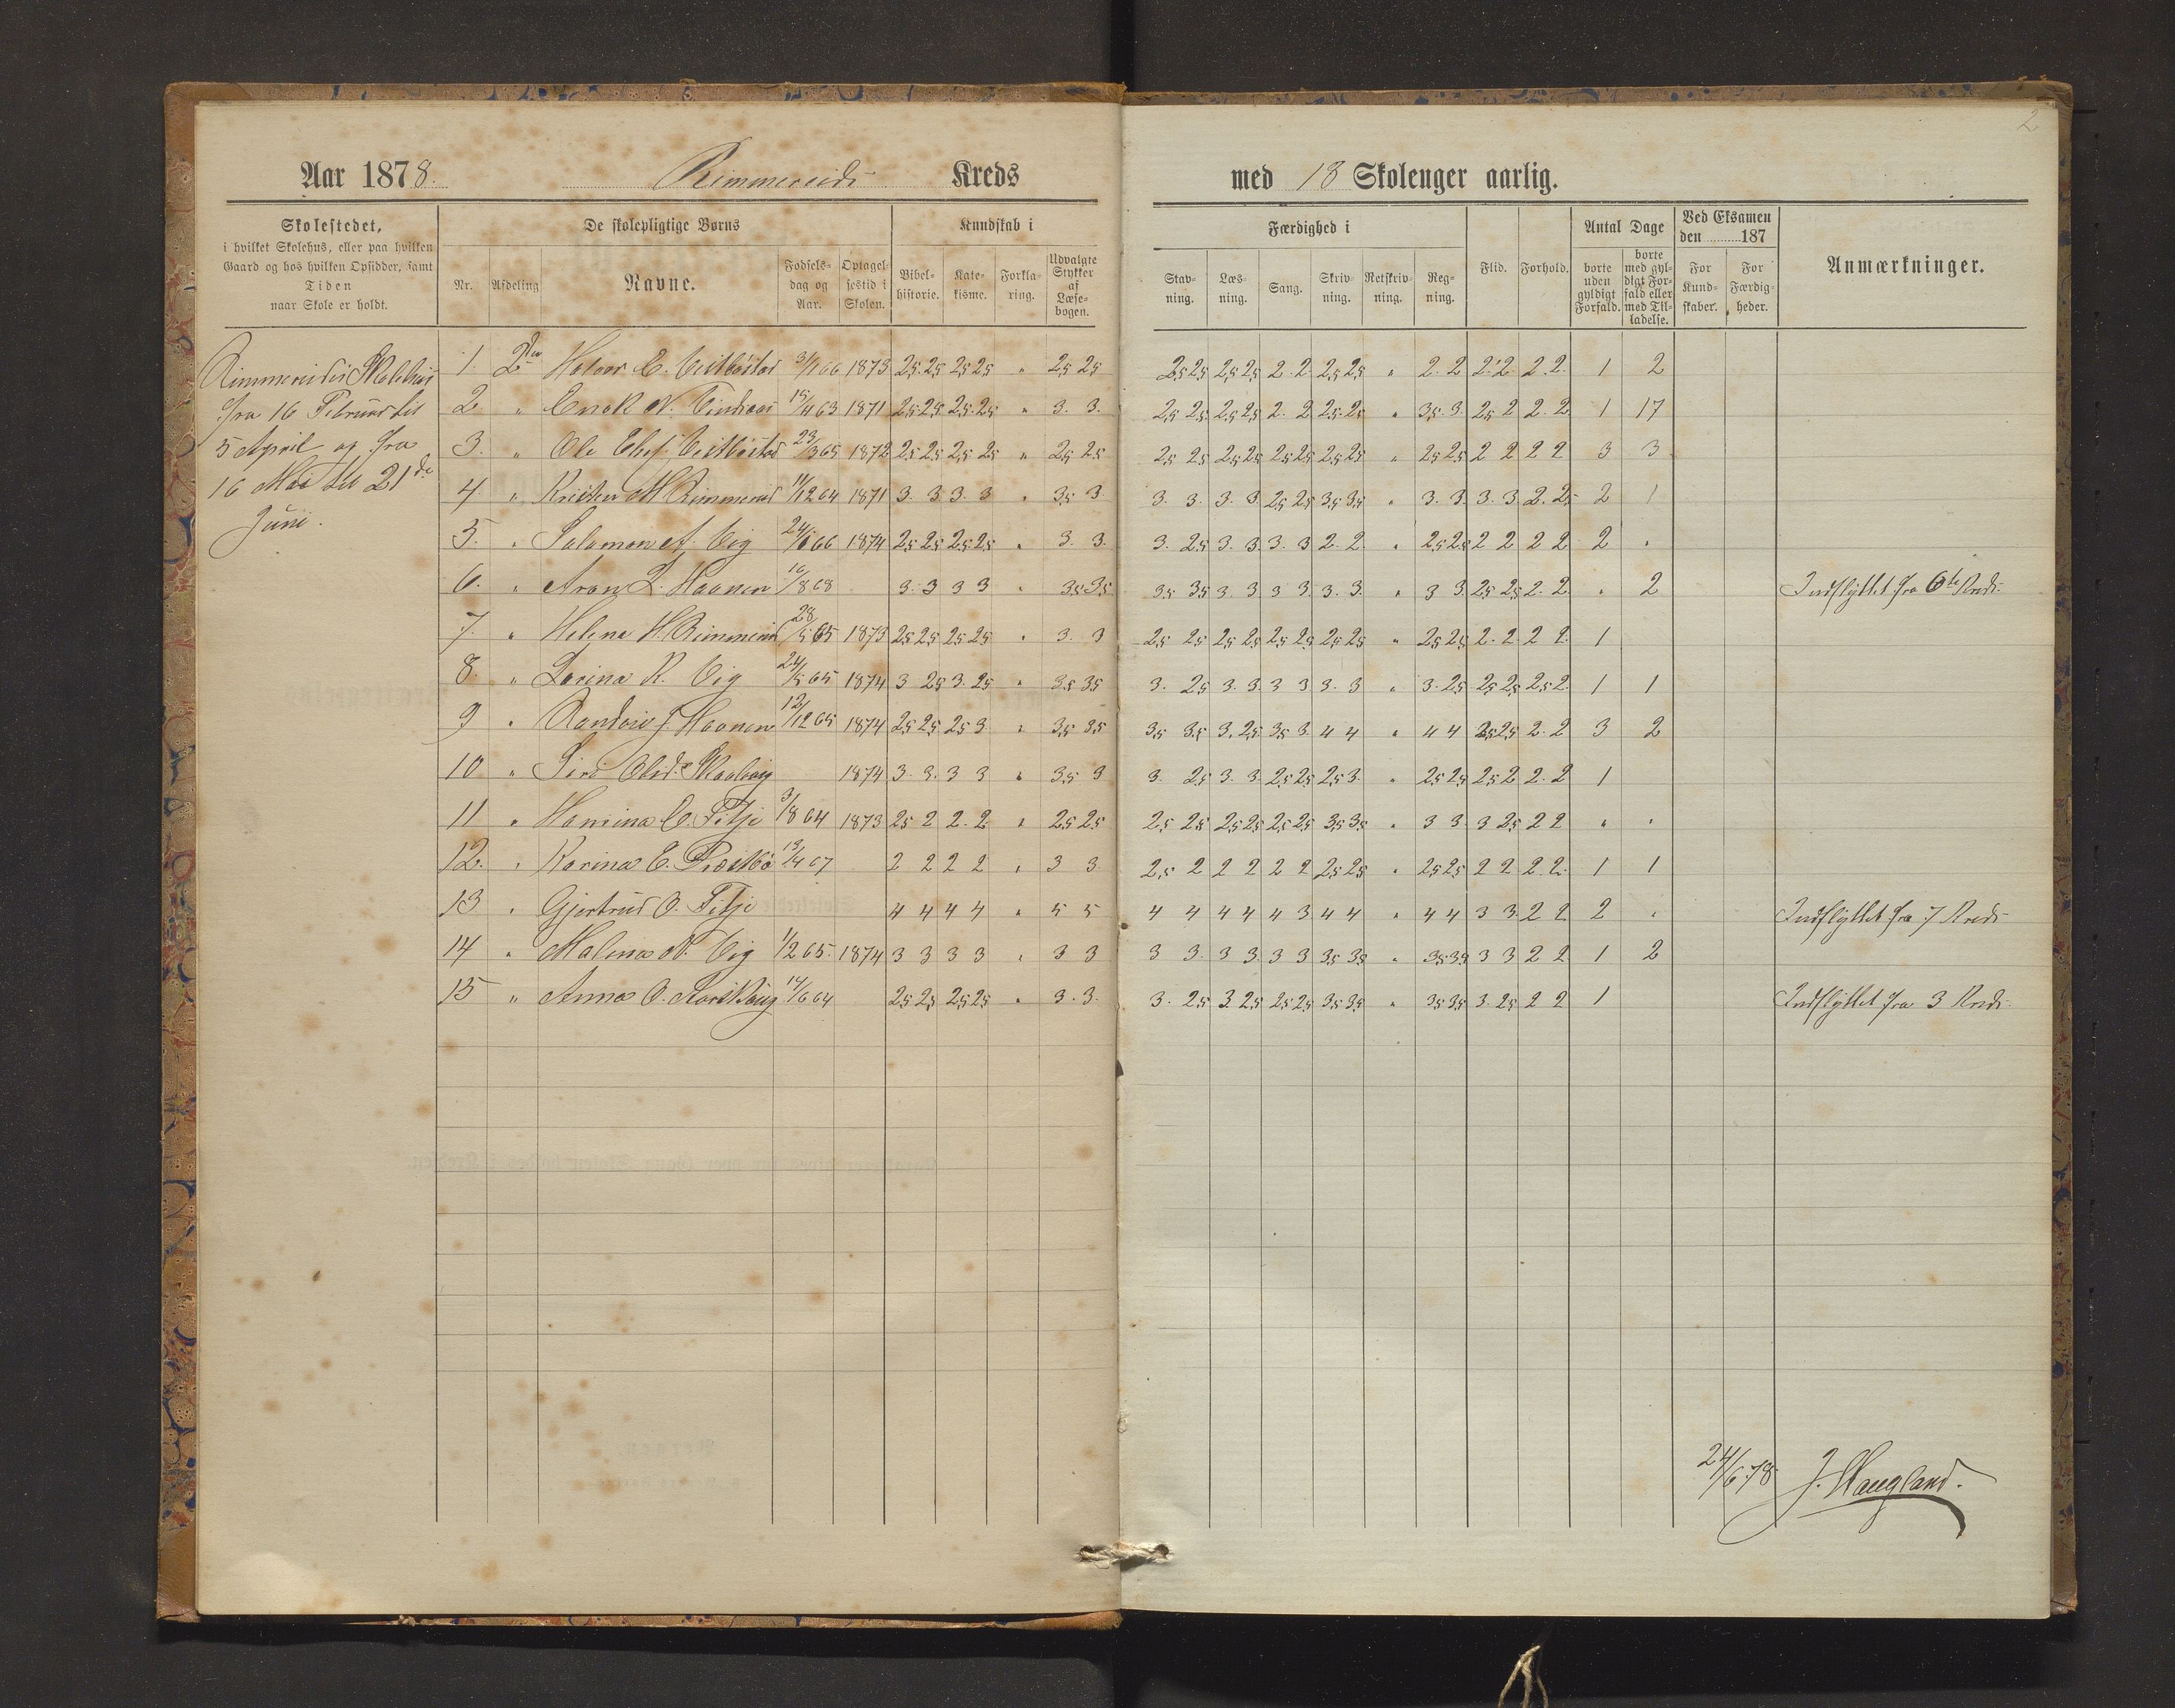 2
Aar 1878. Rimmereids Kreds med 18 Skoleuger aarlig.
Skolestedet,
i hvilket Skolehus, eller paa hvilken
Gaard og hos hvilken Opsidder, samt
Tiden
naar Skole er holdt.
De skolepligtige Børns
Nr. Afdeling Navne. Fødsels-dag og Aar. Optagel-sestid i Skolen.
Kundskab i
Bibel-historie. Kate-kisme. Forkla-ring. Udvalgte Stykker af Læse-bogen.
Færdighed i
Stav-ning. Læs-ning. Sang. Skriv-ning. Retskriv-ning. Reg-ning.
Flid. Forhold.
Antal Dage
borte uden gyldigt Forfald. borte med gyl-digt For-fald eller med Til-ladelse.
Ved Eksamen den 187
For Kund-skaber. For Færdig-heder.
Anmærkninger.
Rimmereides Skolehus
fra 16 Februar til
5 April og fra
16 Mai til 21de
Juni.
1. 2den Halvor 3/1 66 1873 2,5 2,5 2,5 2,5 " 2,5 2,5 2,5 2,5 2,5 2,5 2. 2 2,5 2,5 " 2. 2 2. 2 2. 2. 1 2
2 " Enok N. 15/4 63 1871 2,5 2,5 2,5 2,5 " 3. 3. 2,5 2,5 2,5 2,5 2. 2 2,5 2,5 " 3,5. 3. 2,5 2 2. 2 1 17
3. " Ole 23/3 65 1872 2,5 2,5 2,5 2,5 " 2,5 2,5 2,5 2,5 2,5 2,5 2,5 2,5 2,5 2,5 " 2,5 2,5 2 2 2 2 3 3
4 " M. Rimmereid 11/12 64 1871 3. 3 3. 3 " 3,5 3 3. 3. 3. 3 2,5 2,5 3,5 3,5 " 3. 3. 3. 3 2. 2,5 2 1
5. " Salamon A. Vig 24/1 66 1874 2,5 2,5 2,5 2,5 " 3. 3. 3. 2,5 3. 3. 3. 3 2. 2. " 2,5 2,5 2 2 2 2 2 "
6. " Aron L. Haanen 16/8 68 3. 3 3 3 " 3,5 3,5 3,5 3,5 3 3 3 3 3. 3. " 3 3 2,5 2,5 2. 2 " 2 Indflyttet fra 6te Kreds.
7. " Helena H. Rimmereid 28/5 65 1873 2,5 2,5 2,5 2,5 " 3. 3 2,5 2,5 2,5 2,5 2,5 2,5 2,5 2,5 " 2,5 2,5 2. 2. 2 2. 1
8. " Lorina R. Vig 24/5 65 1874 3 2,5 3. 2,5 " 3,5 3,5 3. 2,5 3. 3. 3 3 3. 3 " 3. 2,5 2,5 2,5 2,5 2. 1 1
9 " J. Haanen 12/12 65 1874 2,5 2,5 2,5 3. " 3,5 3,5 3,5 3,5 3. 2,5 3,5 3. 4 4 " 4 4 2,5 2,5 2. 2 3 2
10 " Siri Olsd. 1874 3. 3. 3 3 " 3,5 3 3. 2,5 3. 3 2,5 2,5 2,5 3. " 2,5 2,5 2,5 2 2. 2 1
11 " O. Fitje 3/8 64 1873 2,5 2 2. 2 " 2,5 2,5 2,5 2,5 2,5 2,5 2,5 2,5 3,5 3,5 " 3 3. 3 2,5 2 2 " "
12. " Karina E. 13/4 67 2 2 2 2 " 3 3. 2,5 2 2 2 2 2 2,5 2,5 " 2,5 2,5 2 2 2. 2. 1 1
13 " Gjertrud O. Fitje 4 4 4 4 " 5 5 4 4 4 4 4 3 4 4 " 4 4 3 3. 2 2 2 " Indflyttet fra 7 Kreds
14 " Malena N. Vig 1/2 65. 1874 3 3 3 3 " 3 3 3 3. 3 3. 3 3 3,5 3,5 " 3,5 3,5 3 3 2 2 1 2
15 " Anna O. 14/6 64 2,5 2,5 2,5 2,5 " 3. 3. 3. 2,5 3 2,5 2,5 2,5 3,5 3,5 " 3,5 3,5 3. 2,5 2 2 1 Indflyttet fra 3 Kreds.
24/6 78. J. Haugland.